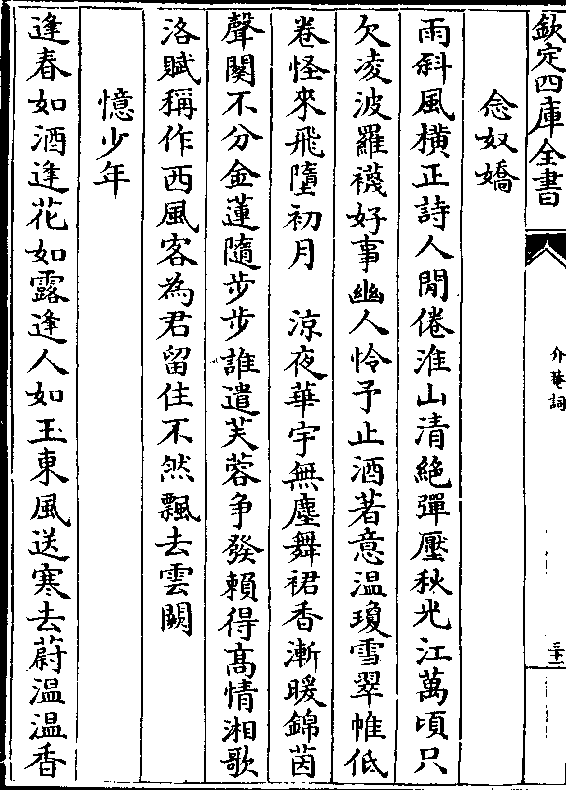 欽定四庫全書
介菴詞
三十二
念奴嬌
雨斜風橫正詩人閒倦淮山清絶彈壓秋光江萬頃只
欠凌波羅襪好事幽人怜予止酒著意温瓊雪翠帷低
卷怪來飛墮初月　涼夜華宇無塵舞裙香漸暖錦茵
聲闋不分金蓮隨步步誰遣芙蓉争發頼得髙情湘歌
洛賦稱作西風客為君留住不然飄去雲闕
憶少年
逢春如酒逢花如露逢人如玉東風送寒去蔚温温香